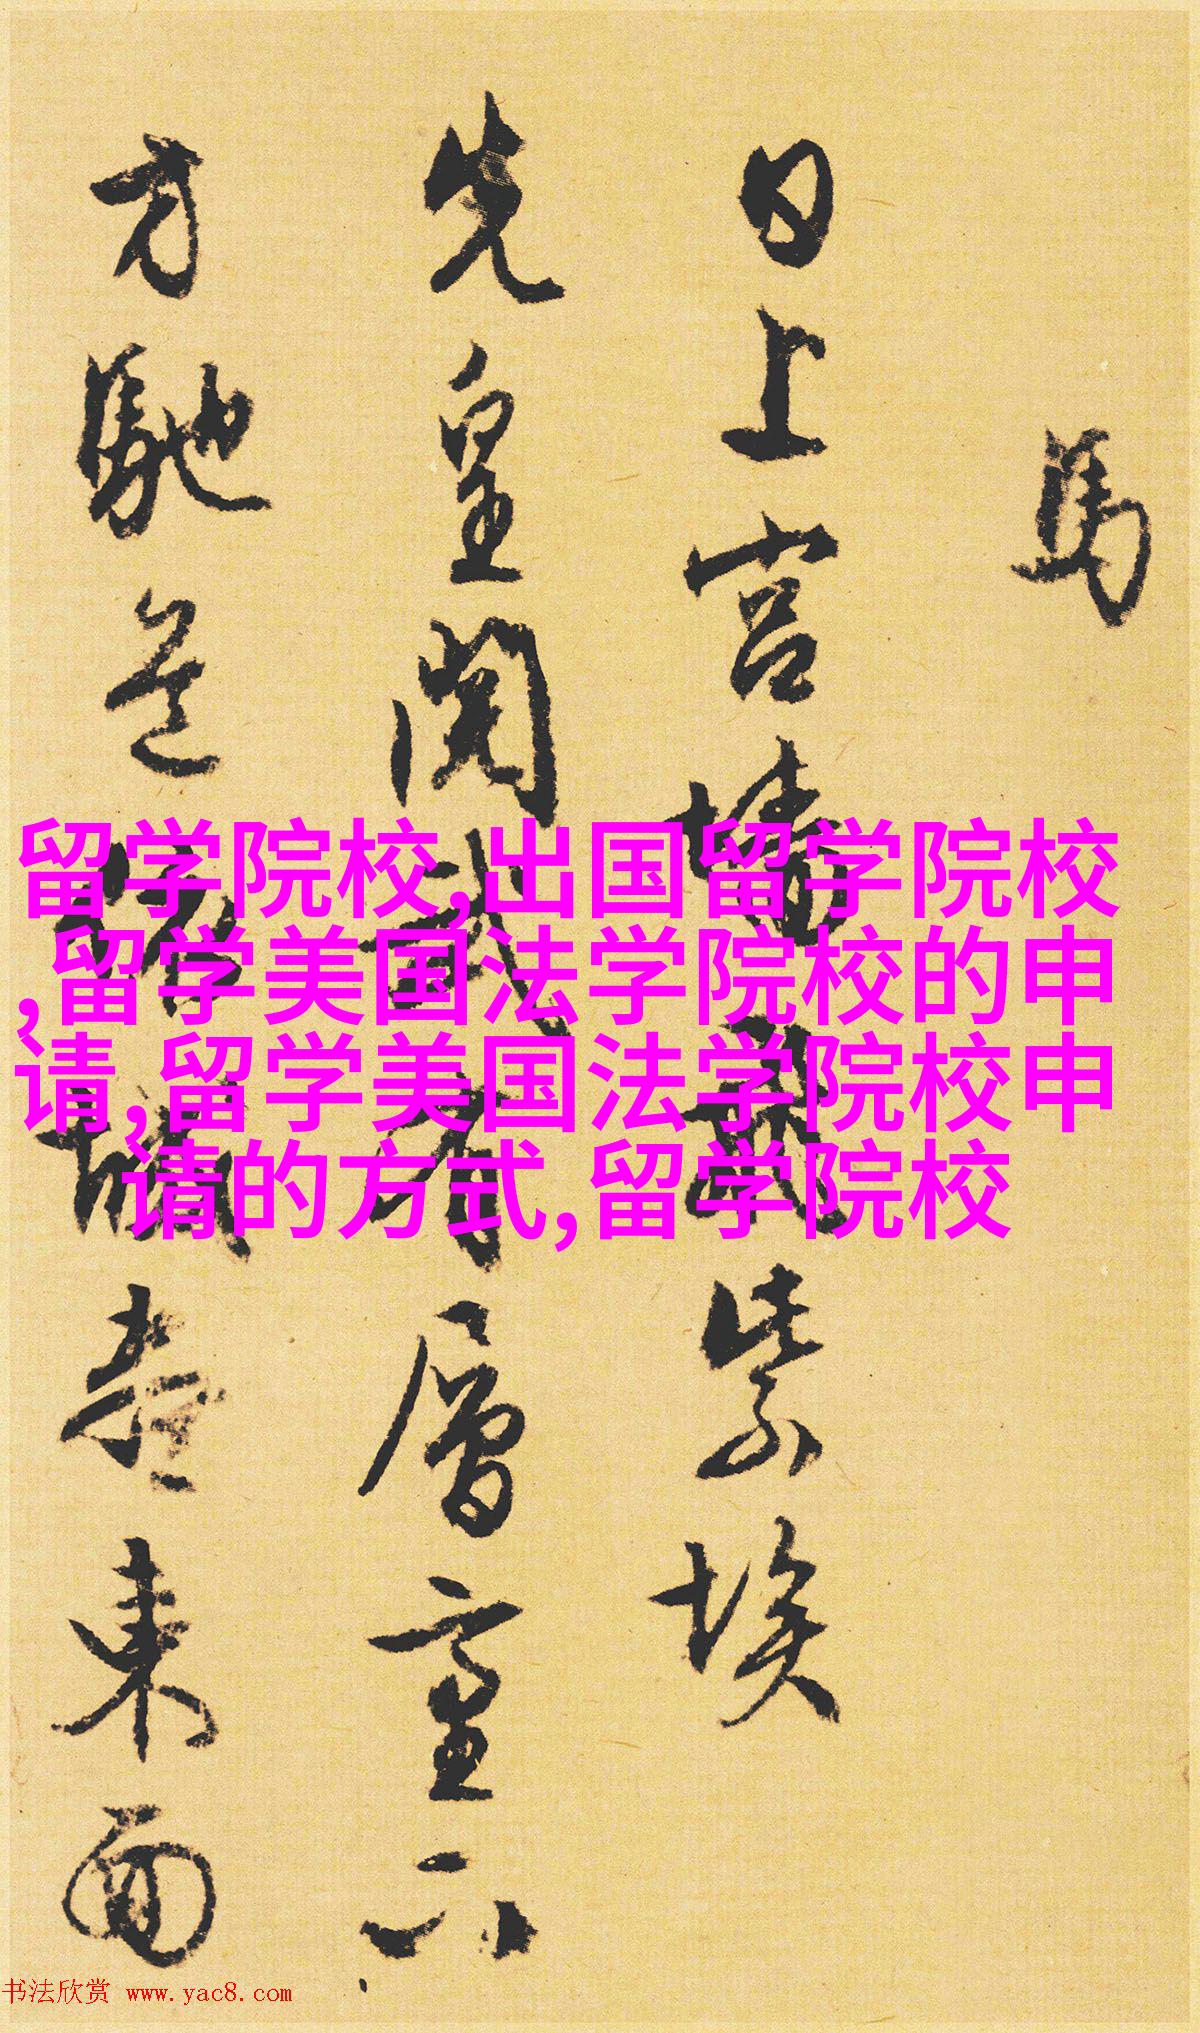 馬
日上宫墙飞紫埃
先皇閱武有層臺六
方馳道
盡東面
留学院校,出国留学院校
,留学美国法学院校的申
请,留学美国法学院校申
请的方式,留学院校
书法欣赏 www.yac8.com